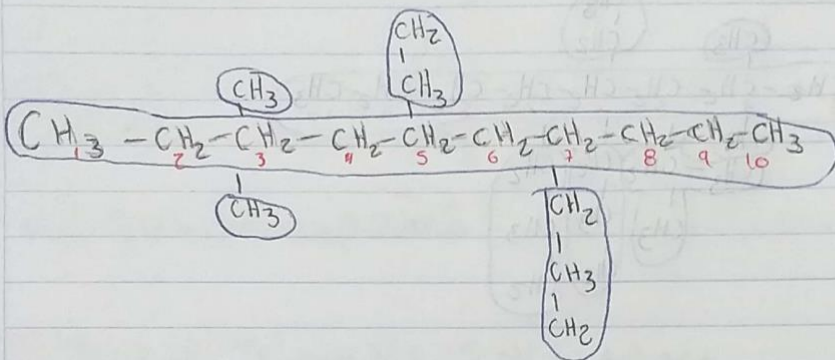 CH2
CH3 CH3
CH3 - CH2 - CH2 - CH2 - CH2 - CH2 - CH2 - CH2 - CH2 - CH3
1 2 3 4 5 6 7 8 9 10
CH3 CH2
CH3
CH2